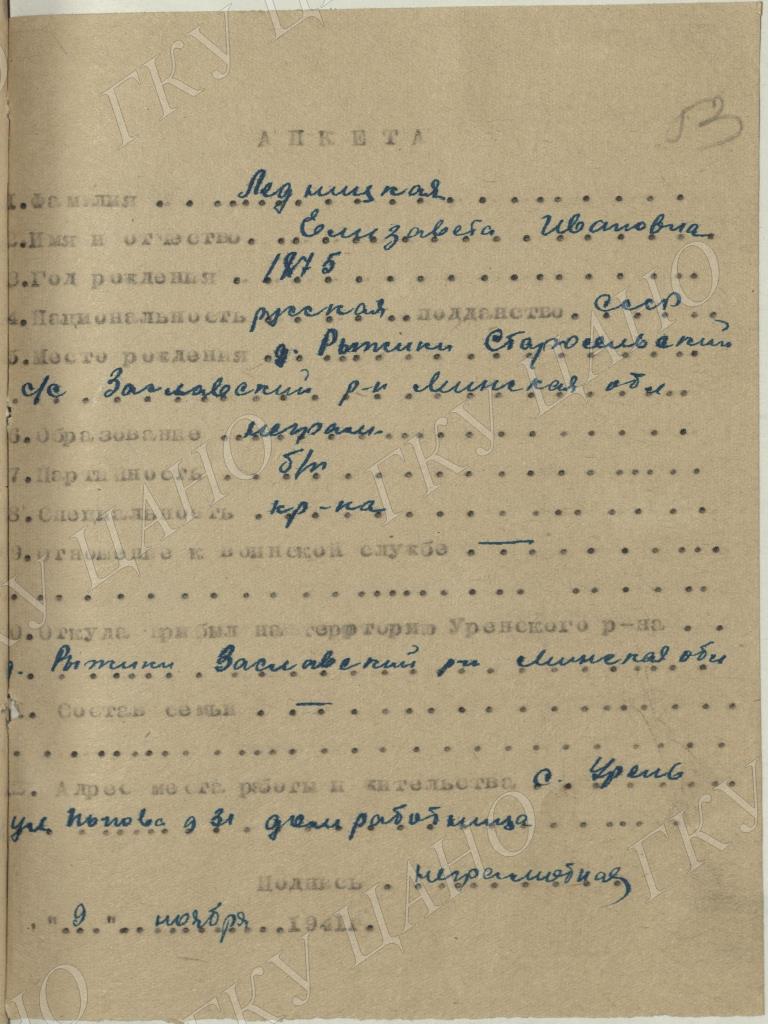 53
АНКЕТА
1.Фамилия . . . Ледницкая
2.Имя и отчество. Елизавета Ивановна
3.Год рождения . 1875
4.Национальность русская подданство. СССР
5.Место рождения д. Рыжики Старосельский
с/с Заславский р-н Минская обл
6.Образование неграм.
7.Партийность . . б/п
8.Специальность . кр-ка
9.Отношение к воинской службе . —
0.Откуда прибыл на территорию Уренского р-на . .
д. Рыжики Заславский р-н Минская обл
Состав семьи . . —
Адрес места работы и жительства с. Урень
ул Попова д 31 дом работница
Подпись . неграмотная
"9" ноября 1941г.